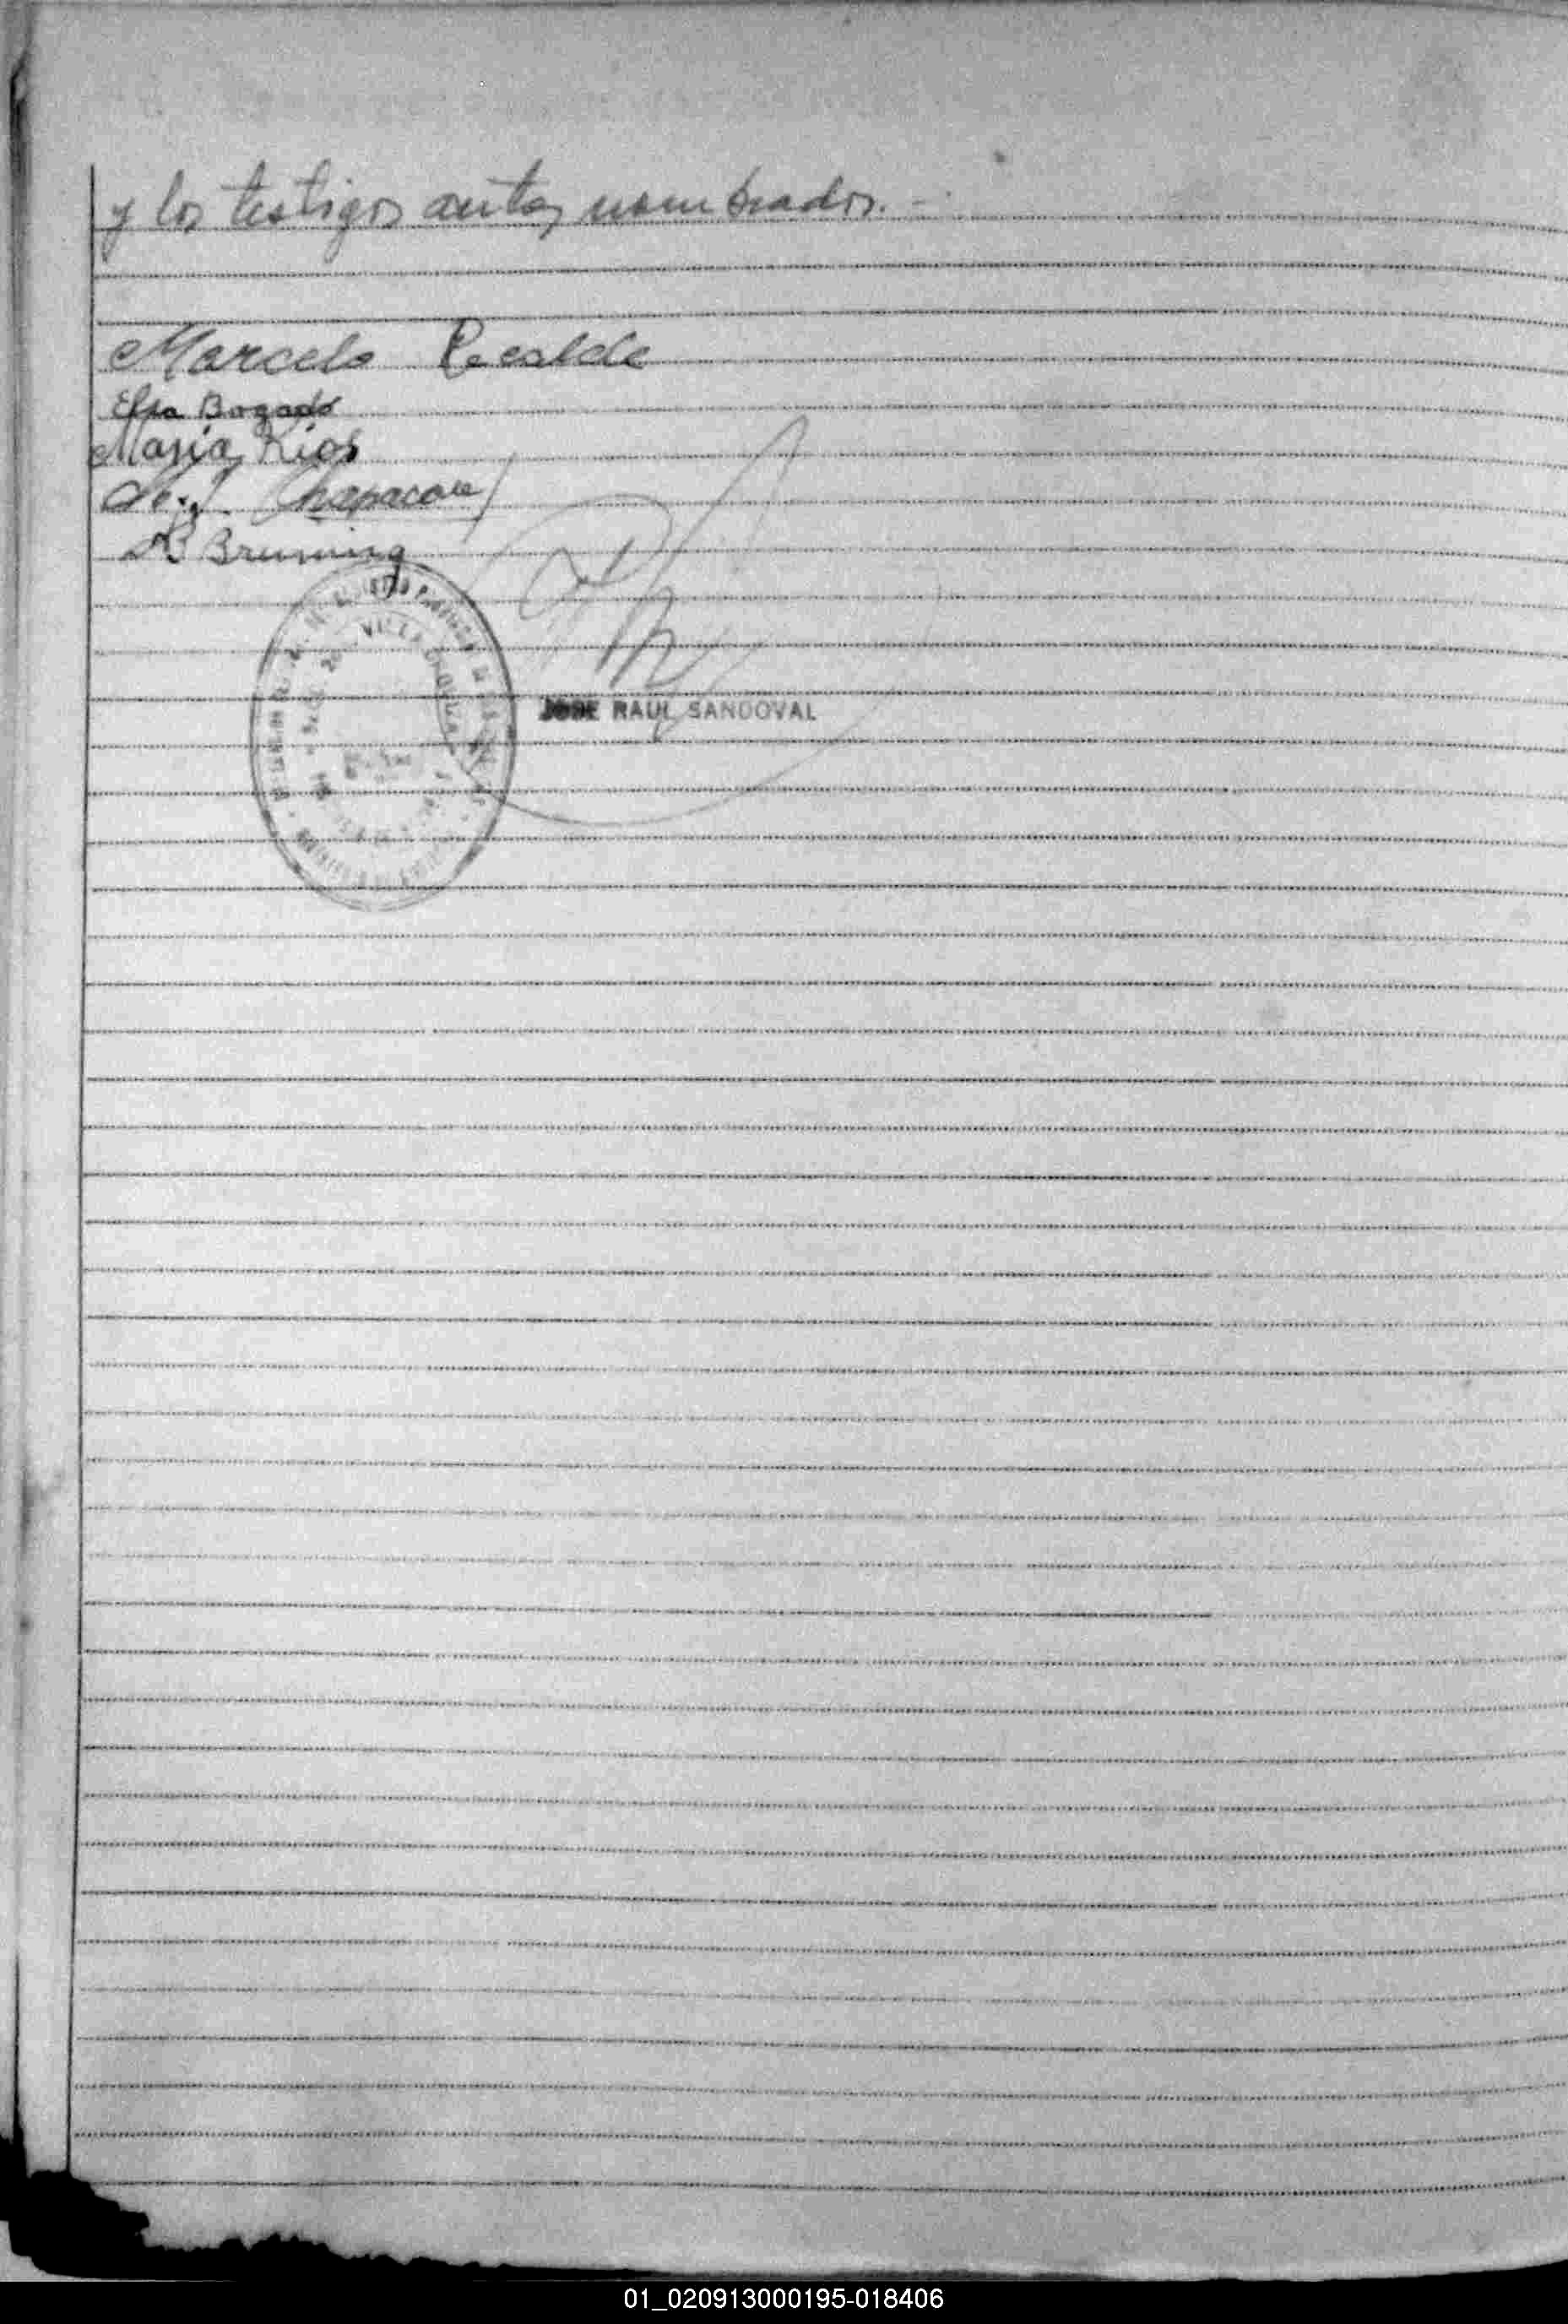 y los testigos antes nombrados.-
Marcelo Recalde
Elsa Bogado
Maria Rios
Chapacou
Bruning
VILLA
JOSE RAUL SANDOVAL
01_020913000195-018406